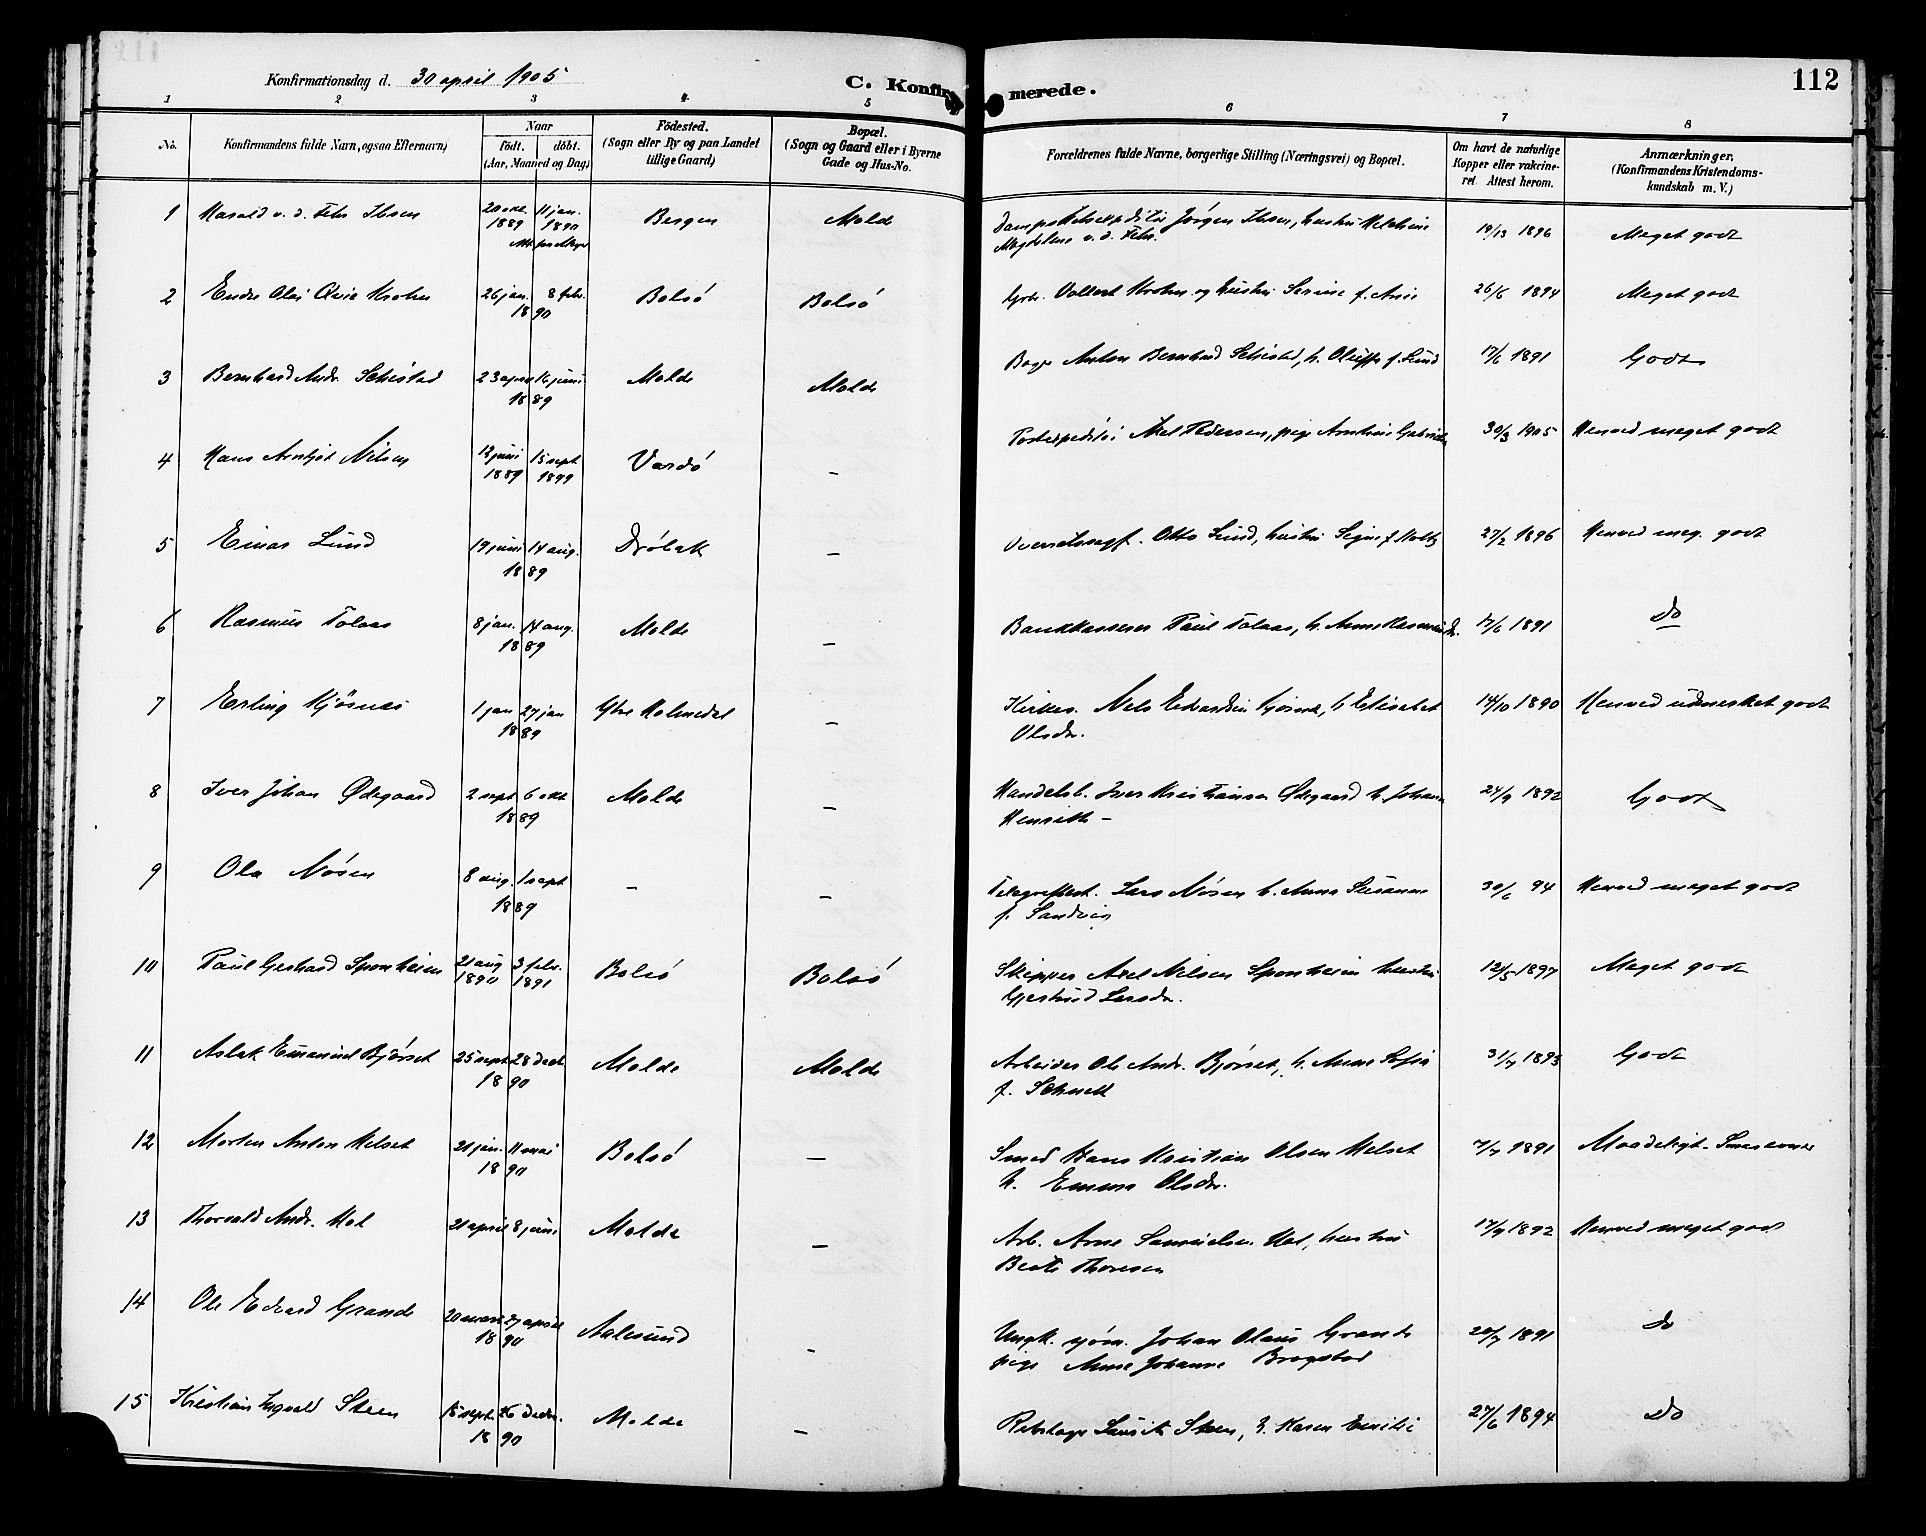 112
Konfirmationsdag d. 30 april 1905
C. Konfirmerede.
1 2 3 4 5 6 7 8
No.
Konfirmandens fulde Navn, ogsaa Efternavn)
Naar
födt. döbt.
(Aar, Maaned og Dag)
Födested.
(Sogn eller By og paa Landet
tillige Gaard)
Bopæl.
(Sogn og Gaard eller i Byerne
Gade og Hus-No.
Forældrenes fulde Navne, borgerlige Stilling (Næringsvei) og Bopæl.
Om havt de naturlige
Kopper eller vakcine-
ret. Attest herom.
Anmærkninger.
(Konfirmandens Kristendoms-
kundskab m. V.)
1 Harald v. d. Fehr Ibsen 20 okt. 1889 11 jan. 1890 Bergen Molde Jørgen Ibsen, hustru
Magdalene v. d. Fehr. 1896 Meget godt
2 Krohn 26 jan. 8 febr. 1890 Bolsö Bolsö Vollert Krohn og hustru 26/6 1894 Meget godt
3 Bernhard Andr. Schistad 23 april 16 juni 1889 Molde Molde Anton Bernhard Schistad, h. f. Lund 17/6 1891 Godt
4 Hans Arntjot Nilsen 12 juni 1889 15 sept 1899 Vardö – 30/3 1905 Henved meget godt
5 Einar Lund 19 juni 14 aug. 1889 Dröbak – Overretssagf. Otto Lund, hustru Signe f. Holtz 27/2 1896 Henved meg. godt
6 Rasmus Tolaas 8 jan. 14 aug. 1889 Molde – Bankkasserer Paul Tolaas, h. Anne 17/6 1891 Do
7 Erling Kjösnes 1 jan 27 jan 1889 Ytre Holmedal – Kirkes. Nels h. Elisabet
Olsdr. 14/10 1890 Henved udmerket godt
8 Iver Johan Ødegaard 2 sept 6 okt 1889 Molde – Handelsb. Iver Kristiansen Ødegaard h. Johanna
Henriette – 24/9 1892 Godt
9 Ola Nösen 8 aug. 1 sept 1889 – – Lars Nösen h. Anne Susanne
f. Sandvig 30/6 94 Henved meget godt
10 Paul Gerhard Sponheim 21 aug 1890 3 febr. 1891 Bolsö Bolsö Skipper Axel Nilsen Sponheim hustru
Gjertrud Larsdr. 12/5 1897 Meget godt
11 Aslak Emanuel Bjørset 25 sept 28 decb 1890 Molde Molde Arbeider Ole Andr. Bjørset, h. Anne Sofie
f. 31/7 1893 Godt
12 Morten Anton Helset 21 jan. 11 mai 1890 Bolsö – Smed Hans Kristian Olsen Helset
h. Emma Olsdr. 7/7 1891 Maadeligt.
13 Thorvald Andr. Hol 21 april 8 juni Molde – Arb. Arne Samuelsen Hol, hustru
Beate Thoresen 17/9 1892 Henved meget godt
14 Ole Edvard Grande 20 mars 27 april 1890 Aalesund – Ungk. sjöm. Johan Olaus Grande
pige Anne Johanne Brogstad 20/7 1891 Do
15 Kristian Ingvald Steen 15 sept. 26 decbr. 1890 Molde – Rebslager Lauritz Steen, h. Karen Emilie 27/6 1894 Do